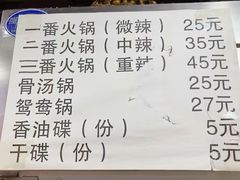 一番火锅（微辣） 25元
二番火锅（中辣） 35元
三番火锅（重辣） 45元
骨汤锅 25元
鸳鸯锅 27元
香油碟（份） 5元
干碟（份） 5元